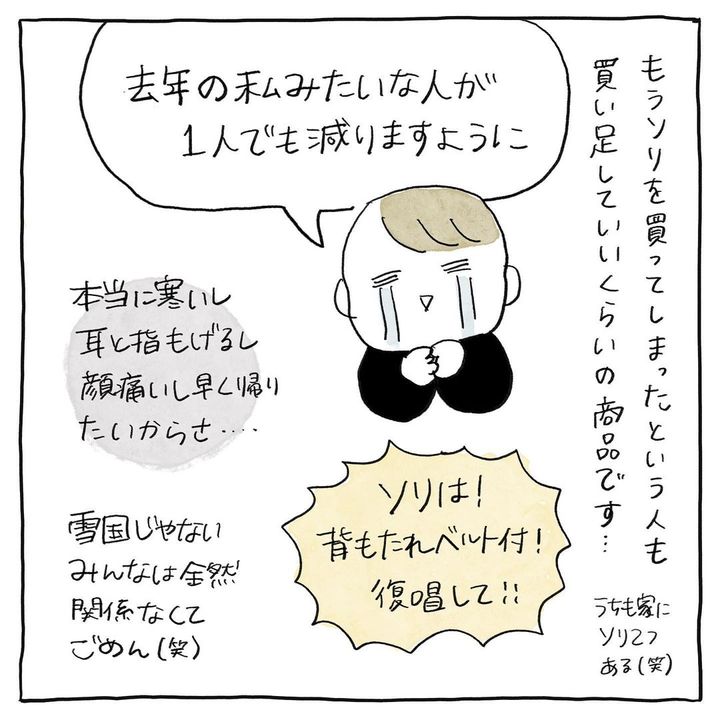 もうソリを買ってしまったという人も
買い足していいくらいの商品です…
去年の私みたいな人が
1人でも減りますように
本当に寒いし
耳と指もげるし
顔痛いし早く帰り
たいからさ‥‥
ソリは!
背もたれベルト付!
復唱して!!
雪国じゃない
みんなは全然
関係なくて
ごめん(笑)
うちも家に
ソリ2つ
ある(笑)